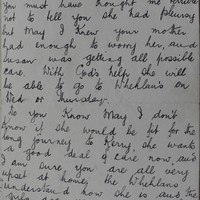 You must have thought me
not to tell you she had pleurisy
but May I knew your mother
had enough to worry her, and
Susan was getting all possible
care. With God's help she will
be able to go to Whehlans on
Wed or Thursday.
Do you know May I don't
know if she would be fit for the
long journey to Kerry, she wants
a good deal of care now, and
I am sure you are all very
upset at home, the Whehlans
understand how she is and the